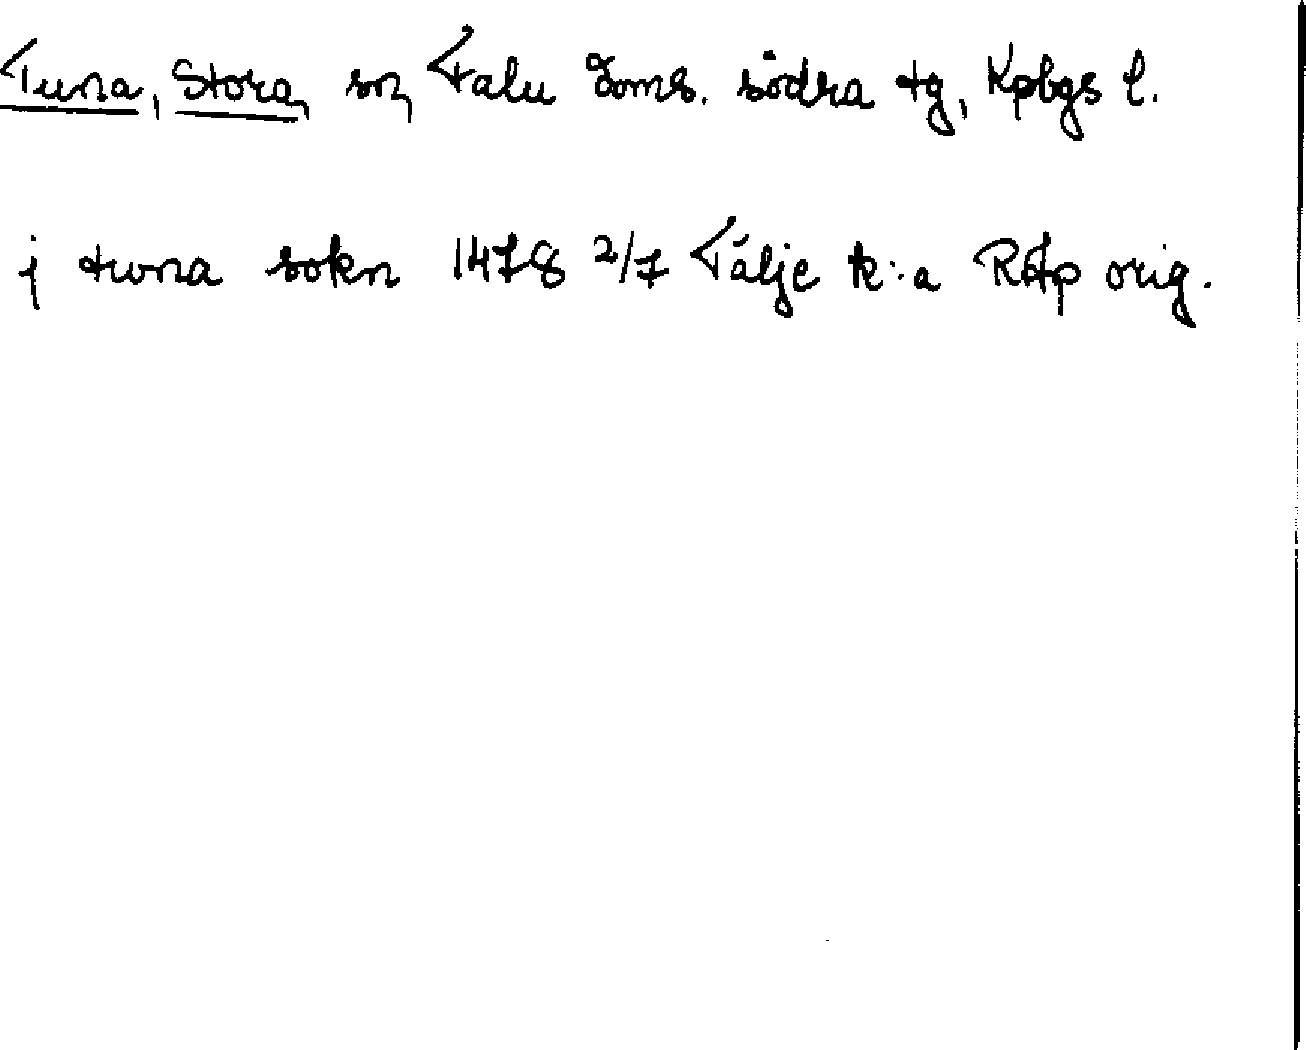 Tuna, Stora, sn, Falu Doms. södra tg, Kpbgs l.
j twna sokn 1478 2/7 Tälje k:a RAp orig.